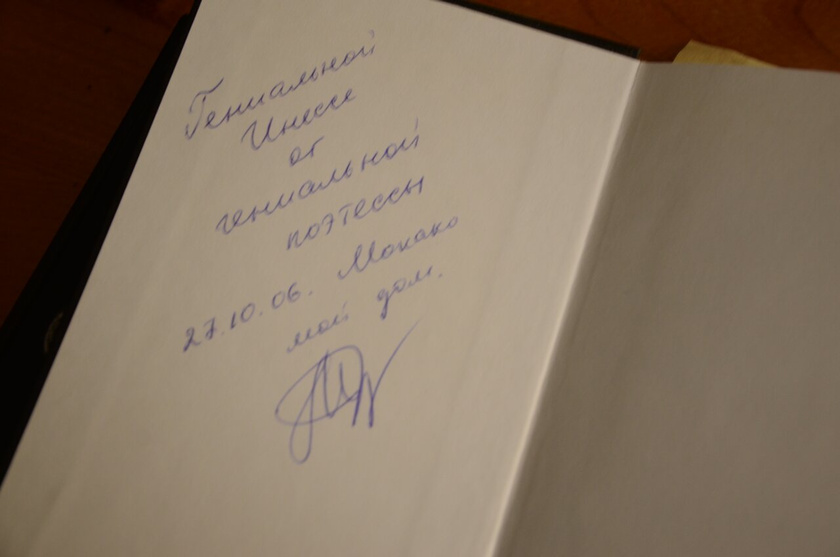 Гениальной
Инессе
от
гениальной
поэтессы
27.10.06. Монако
мой дом.